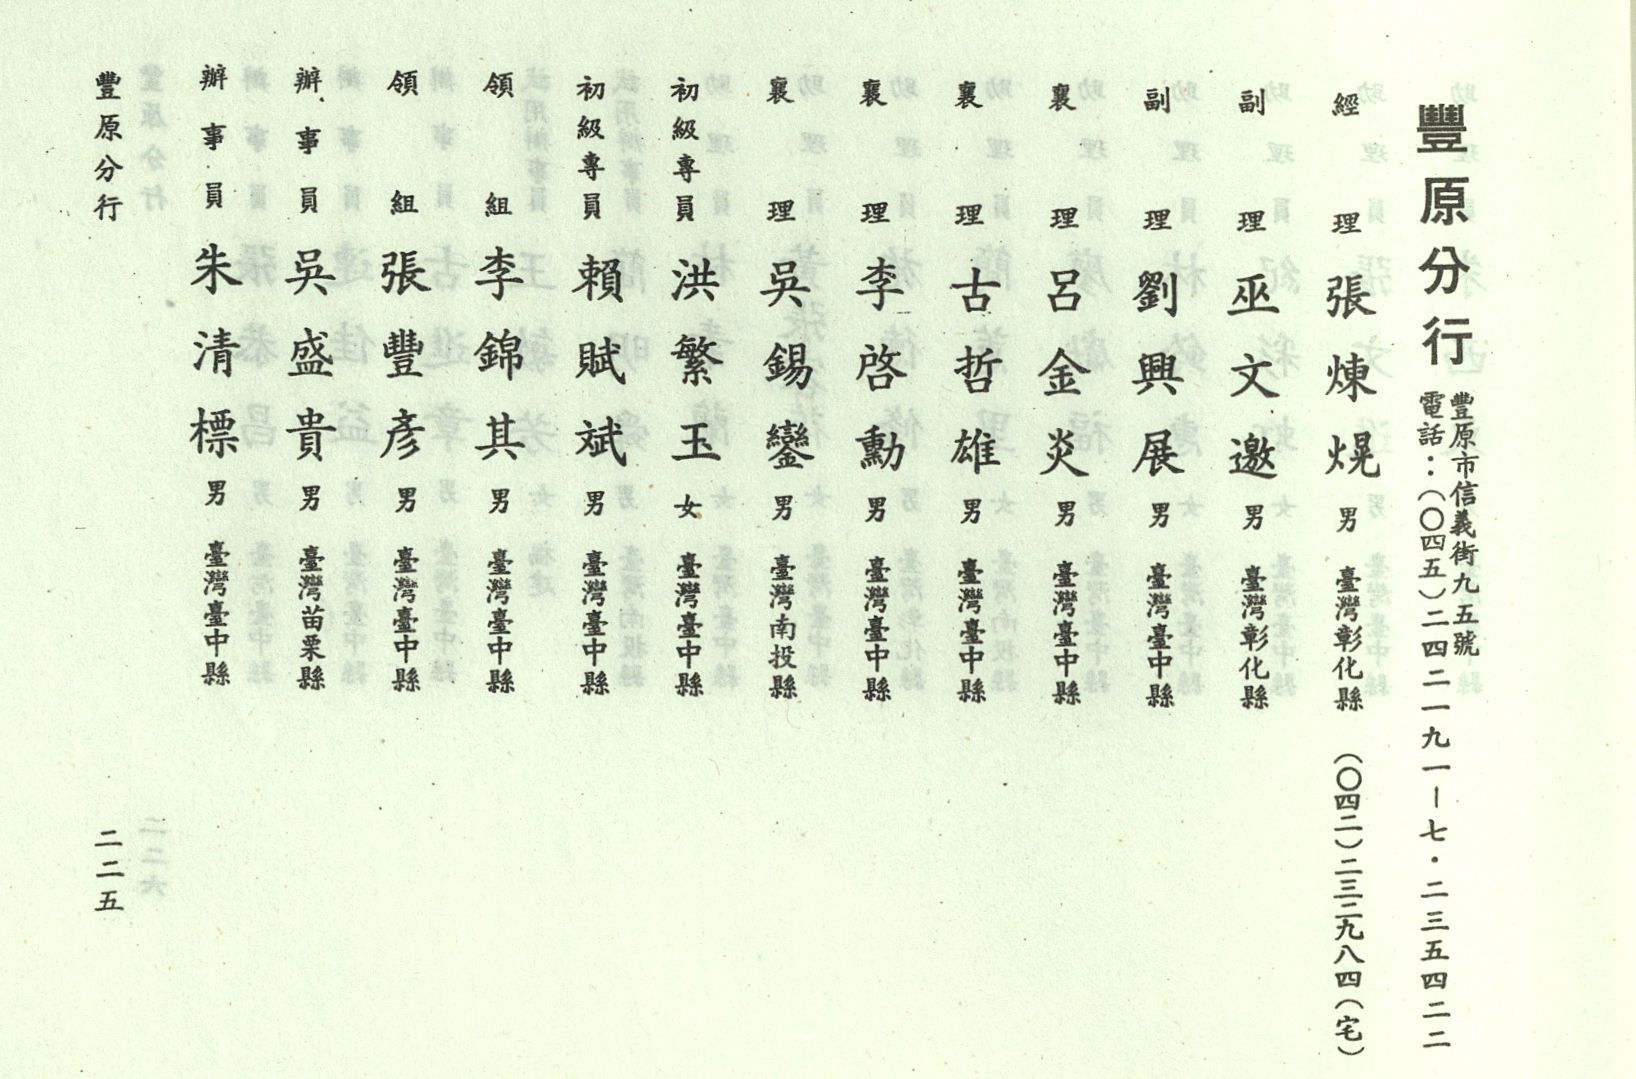 豐原分行
豐原市信義街九五號
電話：（〇四五）二四二一九一－七・二三五四二二
經理 張煉熀 男 臺灣彰化縣 （〇四二）二三二九八四（宅）
副理 巫文邀 男 臺灣彰化縣
副理 劉興展 男 臺灣臺中縣
襄理 呂金炎 男 臺灣臺中縣
襄理 古哲雄 男 臺灣臺中縣
襄理 李啓勳 男 臺灣臺中縣
襄理 吳錫鑾 男 臺灣南投縣
初級專員 洪繁玉 女 臺灣臺中縣
初級專員 賴賦斌 男 臺灣臺中縣
領組 李錦其 男 臺灣臺中縣
領組 張豐彥 男 臺灣臺中縣
辦事員 吳盛貴 男 臺灣苗栗縣
辦事員 朱清標 男 臺灣臺中縣
豐原分行
二二五